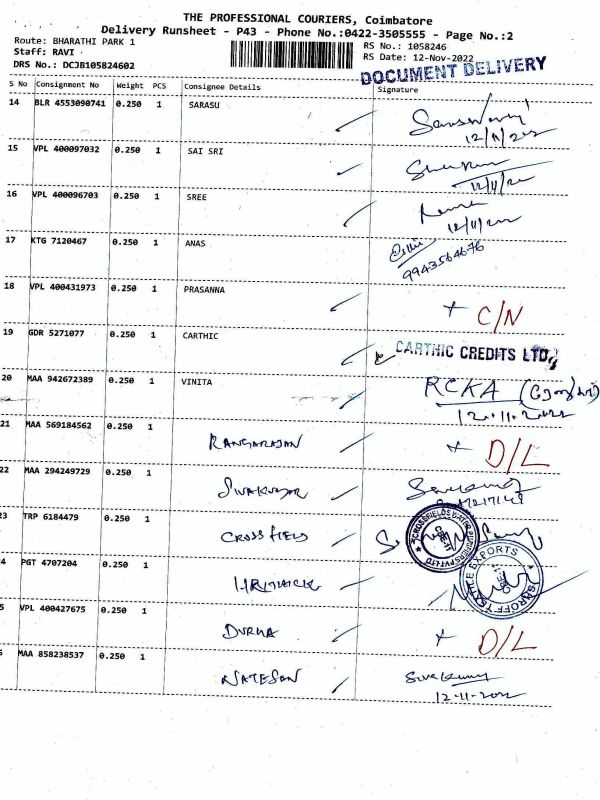 THE PROFESSIONAL COURIERS, Coimbatore
Delivery Runsheet - P43 - Phone No.:0422-3505555 - Page No.:2
Route: BHARATHI PARK 1
RS No.: 1058246
Staff: RAVI
RS Date: 12-Nov-2022
DRS No.: DCJB105824602
DOCUMENT DELIVERY
S No Consignment No Weight PCS Consignee Details Signature
14 BLR 4553090741 0.250 1 SARASU
12/11/202
15 VPL 400097032 0.250 1 SAI SRI
12/11/22
16 VPL 400096703 0.250 1 SREE
12/11/202
17 KTG 7120467 0.250 1 ANAS
9943564676
18 VPL 400431973 0.250 1 PRASANNA
C/N
19 GDR 5271077 0.250 1 CARTHIC
CARTHIC CREDITS LTD.,
20 MAA 942672389 0.250 1 VINITA RCKA
12.11.2022
21 MAA 569184562 0.250 1 RANGARAJAN D/L
22 MAA 294249729 0.250 1 SIVAKUMAR
23 TRP 6184479 0.250 1 CROSSFIELD
CROSSFIELDS WATER PURIFIERS PVT LTD
4 PGT 4707204 0.250 1 HRITHICK
SAROFF TEXTILE EXPORTS
5 VPL 400427675 0.250 1 DURGA D/L
MAA 858238537 0.250 1 NATESAN
12-11-2022